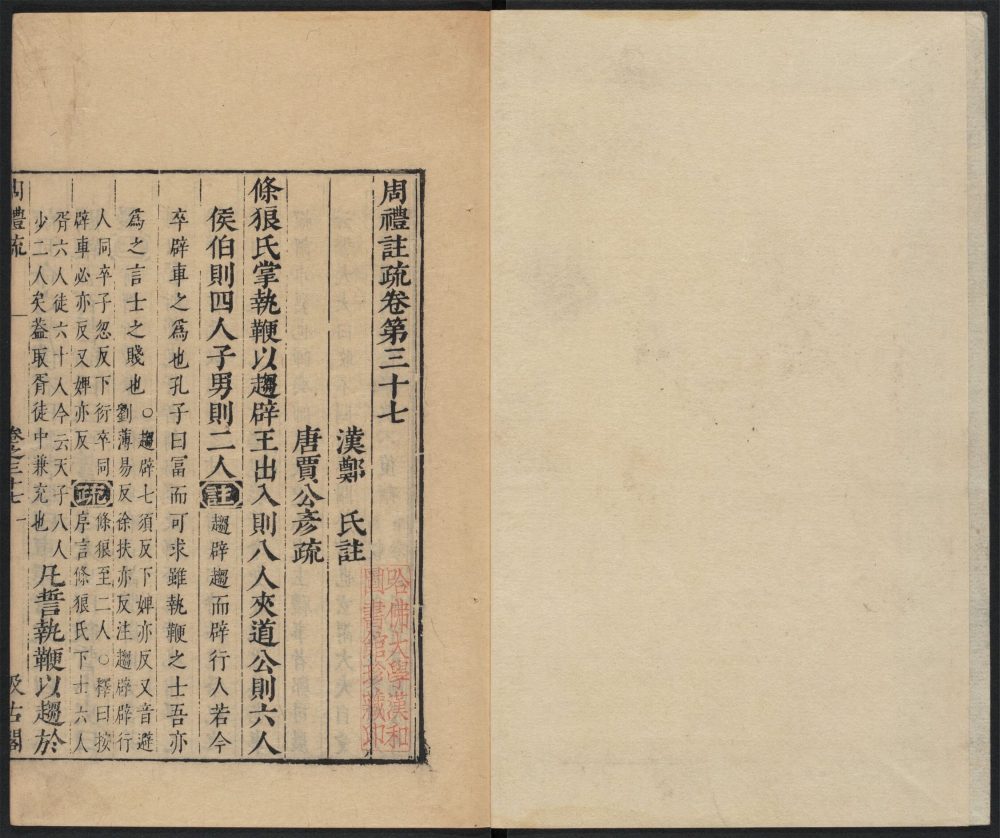 周禮註疏卷第三十七
漢鄭　氏註
唐賈公彥疏
哈佛大學漢和
圖書館珍藏印
條狼氏掌執鞭以趨辟王出入則八人夾道公則六人
侯伯則四人子男則二人註趨辟趨而辟行人若今
卒辟車之爲也孔子曰富而可求雖執鞭之士吾亦
爲之言士之賤也○趨辟七須反下婢亦反又音避
劉薄易反徐扶亦反注趨辟辟行
人同卒子忽反下衍卒同
辟車必亦反又婢亦反疏條狼至二人○釋曰按
序言條狼氏下士六人
胥六人徒六十人今云天子八人
少二人矣蓋取胥徒中兼充也凡誓執鞭以趨於
周禮疏
卷之三十七
一
汲古閣